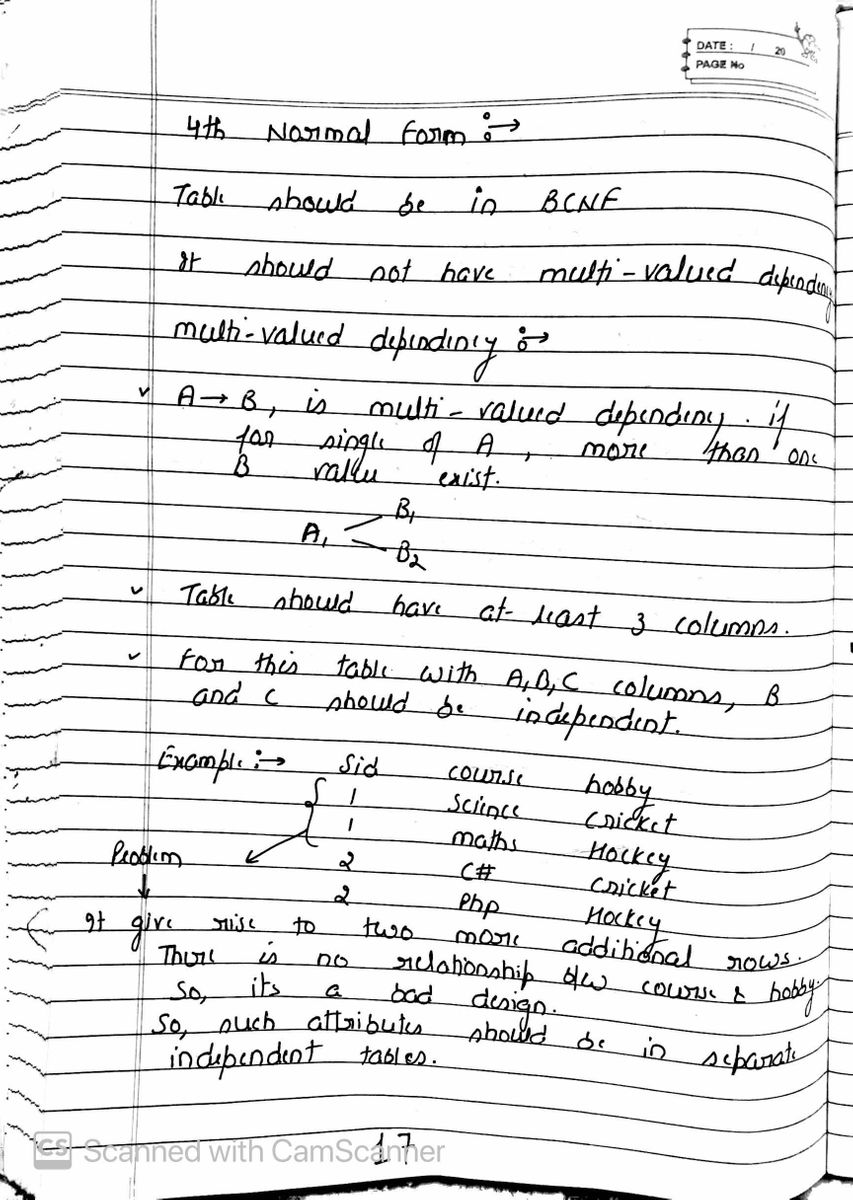 DATE: / 20
PAGE No
4th Normal Form :→
Table should be in BCNF
It should not have multi-valued dependency
multi-valued dependency :→
✓ A → B, is multi-valued dependency. if
for single of A, more than one
B value exist.
B1
A1
B2
✓ Table should have at-least 3 columns.
✓ For this table with A,B,C columns, B
and C should be independent.
Example :→ Sid course hobby
1 Science Cricket
1 maths Hockey
Problem 2 C# Cricket
2 Php Hockey
It give rise to two more additional rows.
There is no relationship b/w course & hobby.
So, its a bad design.
So, such attributes should be in separate
independent tables.
17
CS Scanned with CamScanner